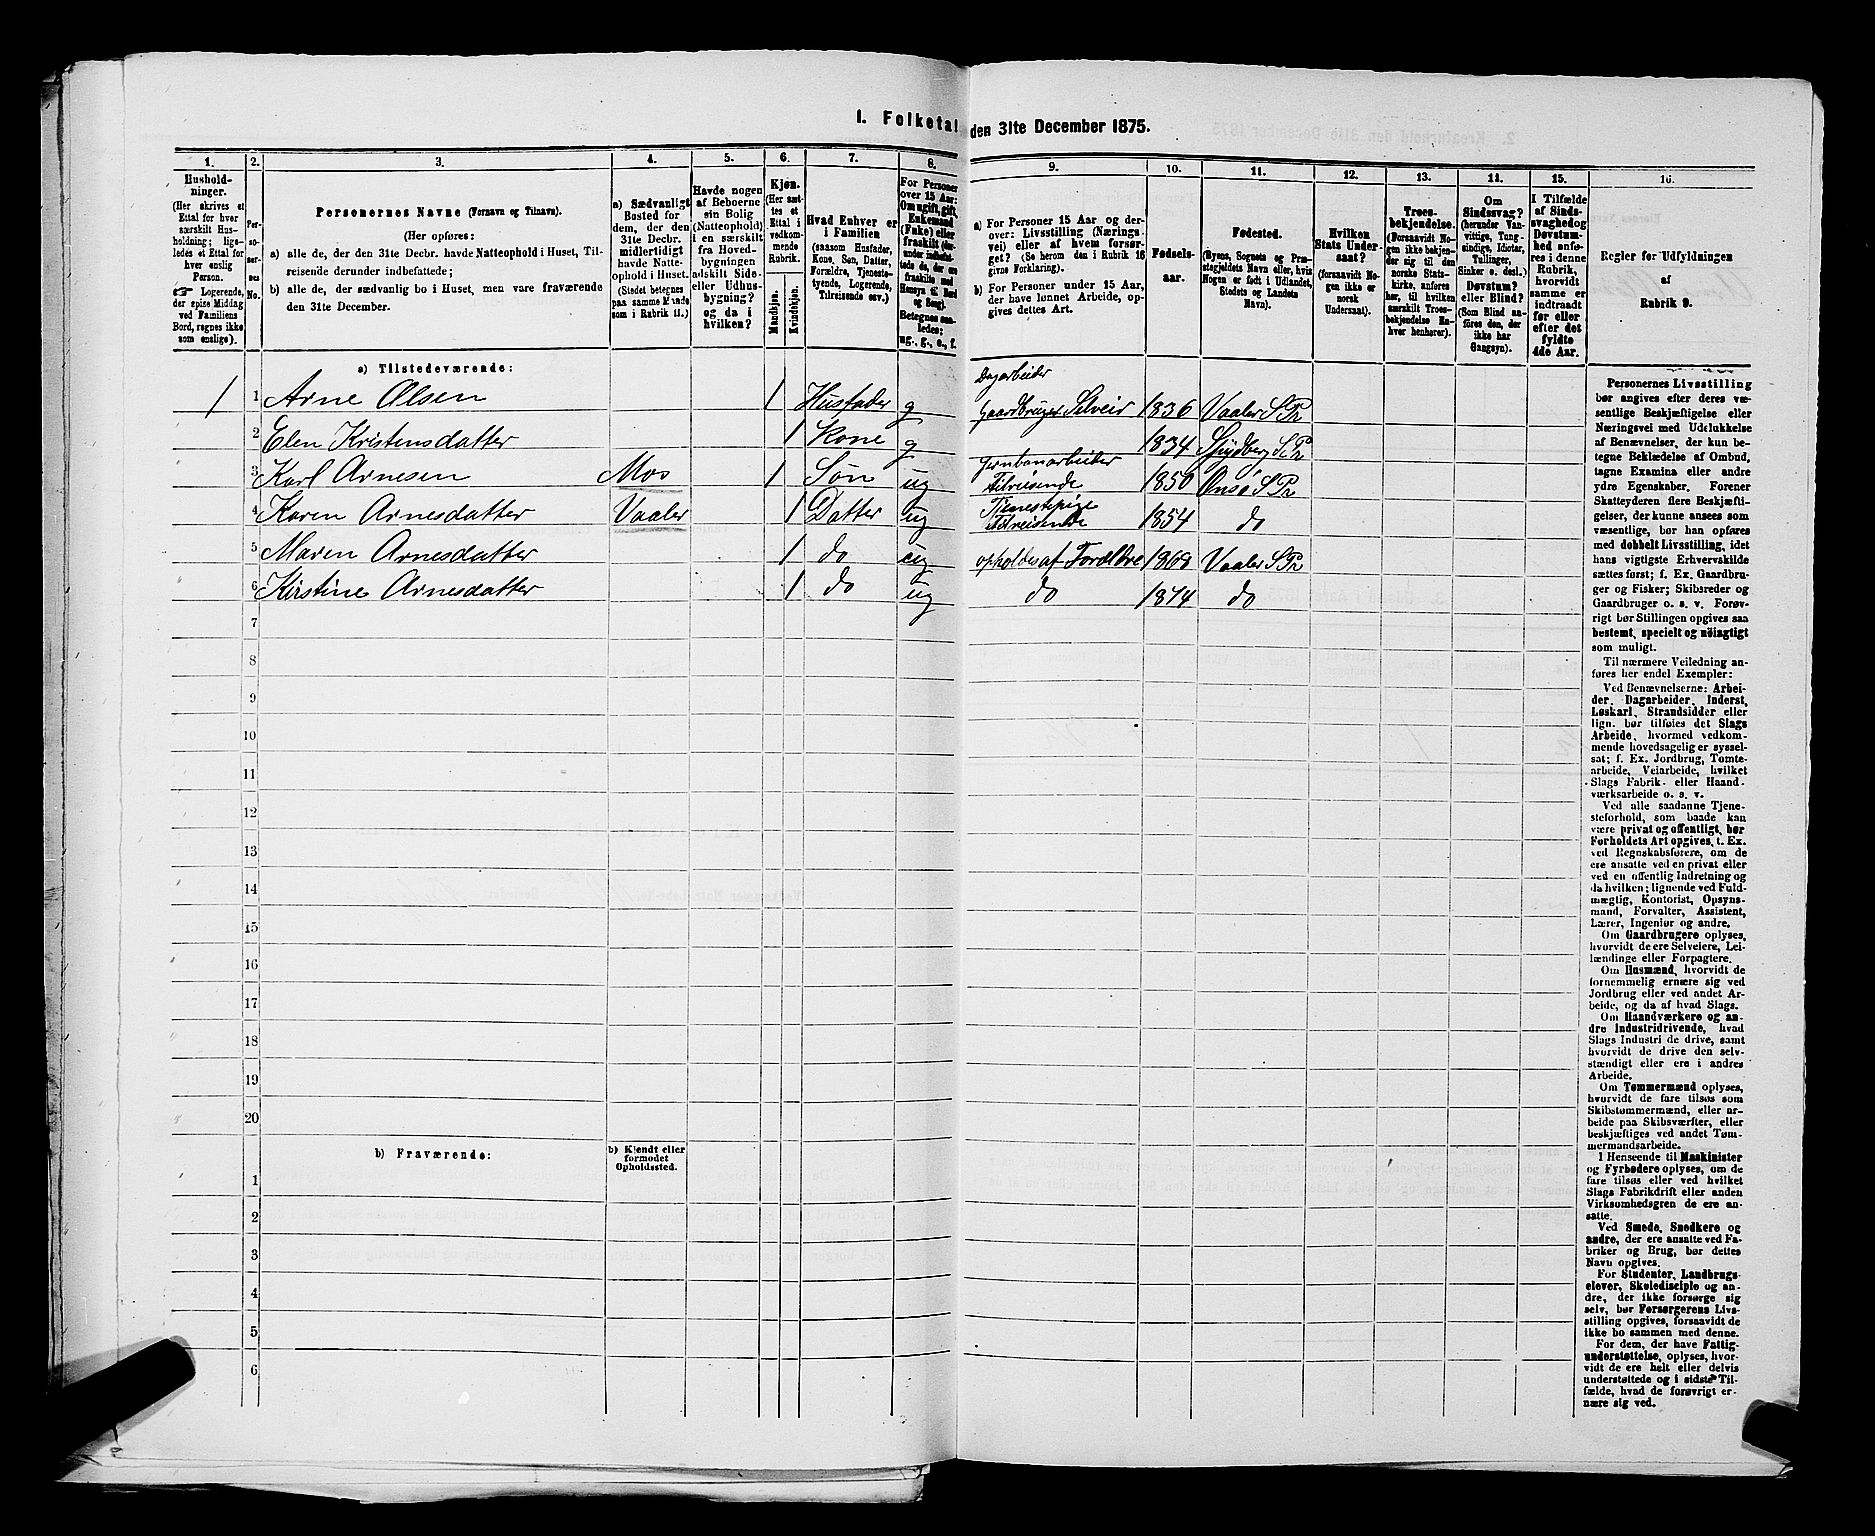 I. Folketal den 31te December 1875.
1. 2. 3. 4. 5. 6. 7. 8. 9. 10. 11. 12. 13. 14. 15. 16.
Husholdninger.
(Her skrives et
Ettal for hver
særskilt Husholdning;
ligeledes et Ettal for
hver enslig
Person.
☞ Logerende,
der spise Middag
ved Familiens
Bord, regnes ikke
som enslige).
Personernes No.
Personernes Navne (Fornavn og Tilnavn).
(Her opføres:
a) alle de, der den 31te Decbr. havde Natteophold i Huset, Tilreisende derunder indbefattede;
b) alle de, der sædvanlig bo i Huset, men vare fraværende
den 31te December.
a) Sædvanligt
Bosted for
dem, der den
31te Decbr.
midlertidigt
havde Natteophold i Huset.
(Stedet betegnes
paa samme Maade
som i Rubrik 11.)
Havde nogen
af Beboerne
sin Bolig
(Natteophold)
i en særskilt
fra Hovedbygningen
adskilt Side-
eller Udhusbygning?
og da i
hvilken?
Kjøn.
(Her sættes et
Ettal i
vedkommende
Rubrik.
Mandkjøn.
Kvindekjøn.
Hvad Enhver er
i Familien
(saasom Husfader,
Kone, Søn, Datter,
Forældre, Tjenestetyende, Logerende,
Tilreisende osv.)
For Personer
over 15 Aar:
Om ugift, gift,
Enkemand
(Enke) eller
fraskilt
Betegnes saaledes:
ug., g., e., f.
a) For Personer 15 Aar og derover: Livsstilling (Næringsvei) eller af hvem forsørget? (Se herom den i Rubrik 16
givne Forklaring).
b) For Personer under 15 Aar,
der have lønnet Arbeide, opgives dettes Art.
Fødselsaar.
Fødested.
(Byens, Sognets og Præstegjeldets Navn eller, hvis
Nogen er født i Udlandet,
Stedets og Landets
Navn).
Hvilken
Stats Undersaat?
(forsaavidt Nogen ikke er
norsk
Undersaat).
Troesbekjendelse.
(Forsaavidt Nogen ikke bekjender sig til den
norske Statskirke, anføres
her, til hvilken
særskilt Troesbekjendelse Enhver henhører).
Om
Sindssvag?
(herunder Vanvittige, Tungsindige, Idioter,
Tullinger,
Sinker o. desl.)
Døvstum?
eller Blind?
(Som Blind anføres den, der
ikke har
Gangsyn).
I Tilfælde
af Sindssvaghed og
Døvstumhed anføres i denne
Rubrik,
hvorvidt
samme er
indtraadt
før eller
efter det
fyldte
4de Aar.
Regler for Udfyldningen
af
Rubrik 9.
a) Tilstedeværende:
1 1 Arne Olsen 1 Husfader g Dagarbeider Gaardbruger Selveier 1836 Vaaler S Pr
2 Elen Kristensdatter 1 Kone g 1834 Spydberg S Pr
3 Karl Arnesen Mos 1 Søn ug Jernbanarbeider Tilreisende 1850 Onsø S Pr
4 Karen Arnesdatter Vaaler 1 Datter ug Tjenestepige Tilreisende 1854 do
5 Maren Arnesdatter 1 do ug opholdes af Forældre 1868 Vaaler S Pr
6 Kirstine Arnesdatter 1 do ug do 1874 do
7
8
9
10
11
12
13
14
15
16
17
18
19
20
b) Fraværende:
b) Kjendt eller
formodet
Opholdssted.
1
2
3
4
5
6
Personernes Livsstilling
bør angives efter deres væsentlige Beskjæftigelse eller
Næringsvei med Udelukkelse
af Benævnelser, der kun betegne Beklædelse af Ombud,
tagne Examina eller andre
ydre Egenskaber. Forener
Skatteyderen flere Beskjæftigelser, der kunne ansees som
væsentlige, bør han opføres
med dobbelt Livsstilling, idet
hans vigtigste Erhvervskilde
sættes først; f. Ex. Gaardbruger og Fisker; Skibsreder og
Gaardbruger o. s. v. Forøvrigt bør Stillingen opgives saa
bestemt, specielt og nöiagtigt
som muligt.
Til nærmere Veiledning anføres her endel Exempler:
Ved Benævnelserne: Arbeider, Dagarbeider, Inderst,
Løskarl, Strandsidder eller
lign. bør tilføies det Slags
Arbeide, hvormed vedkommende hovedsagelig er sysselsat; f. Ex. Jordbrug, Tomtearbeide, Veiarbeide, hvilket
Slags Fabrik- eller Haandværksarbeide o. s. v.
Ved alle saadanne Tjenesteforhold, som baade kan
være privat og offentligt, bør
Forholdets Art opgives, t. Ex.
ved Regnskabsførere, om de
ere ansatte ved en privat eller
ved en offentlig Indretning og
da hvilken; lignende ved Fuldmægtig, Kontorist, Opsynsmand, Forvalter, Assistent,
Lærer, Ingeniør og andre.
Om Gaardbrugere oplyses,
hvorvidt de ere Selveiere, Leilændinge eller Forpagtere.
Om Husmænd, hvorvidt de
fornemmelig ernære sig ved
Jordbrug eller ved andet Arbeide, og da af hvad Slags.
Om Haandværkere og andre Industridrivende, hvad
Slags Industri de drive, samt
hvorvidt de drive den selvstændigt eller ere i andres
Arbeide.
Om Tømmermænd oplyses,
hvorvidt de fare tilsøs som
Skibstømmermænd, eller arbeide paa Skibsværfter, eller
beskjæftiges ved andet Tømmermandsarbeide.
I Henseende til Maskinister
og Fyrbødere oplyses, om de
fare tilsøs eller ved hvilket
Slags Fabrikdrift eller anden
Virksomhedsgren de ere ansatte.
Ved Smede, Snedkere og
andre, der ere ansatte ved Fabriker og Brug, bør dettes
Navn opgives.
For Studenter, Landbrugselever, Skoledisciple og andre, der ikke forsørge sig
selv, bør Forsørgerens Livsstilling opgives, forsaavidt de
ikke bo sammen med denne.
For dem, der have Fattigunderstøttelse, oplyses, hvorvidt de ere helt eller delvis
understøttede og i sidste Tilfælde, hvad de forøvrigt ernære sig ved.